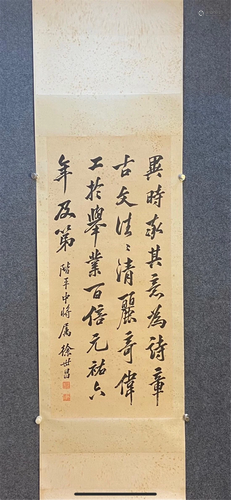 異時取其意為詩章
古文清麗奇偉
工於舉業百倍元祐六
年及第
階平中將屬 徐世昌